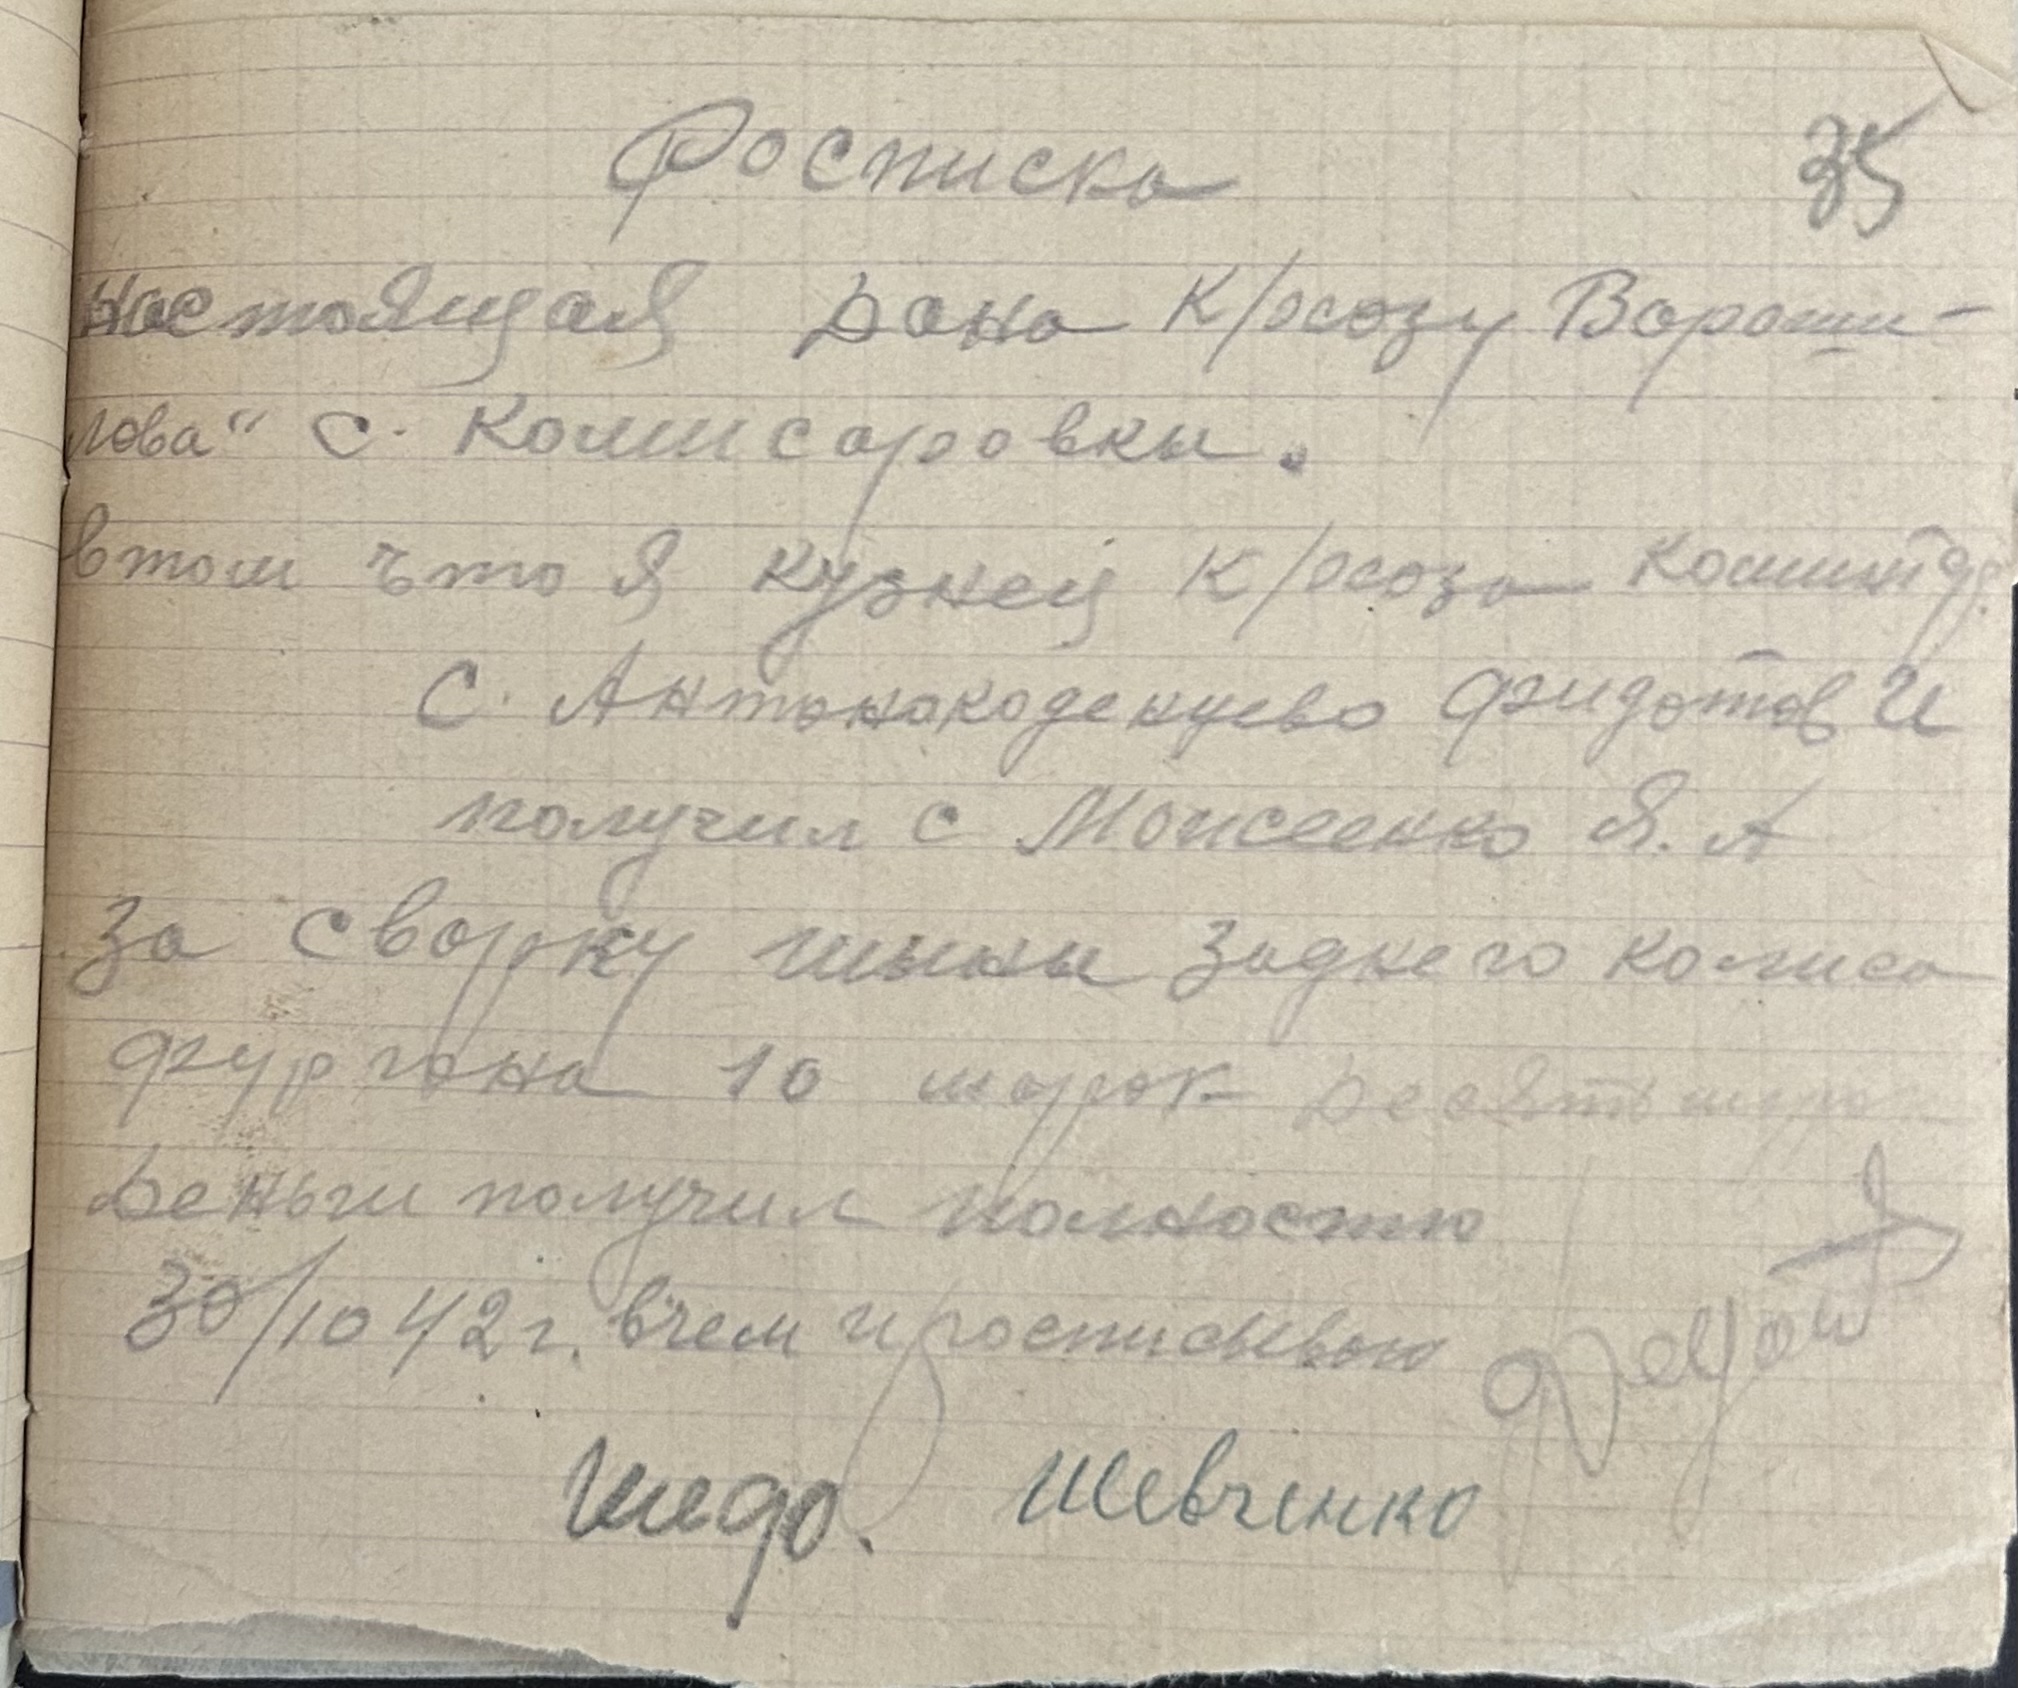 Росписка
35
Настоящая дана к/хозу Вороши-
лова" с. Комисаровки.
втом что я кузнец к/хоза Коминтер.
с. Антонокоденцево Фидотов И
получил с Моисеенко Я. А
За сворку шины заднего колиса
фургона 10 марок десять марок
Деньги получил полностю
30/10 42 г. вчем и росписываю
Шевченко